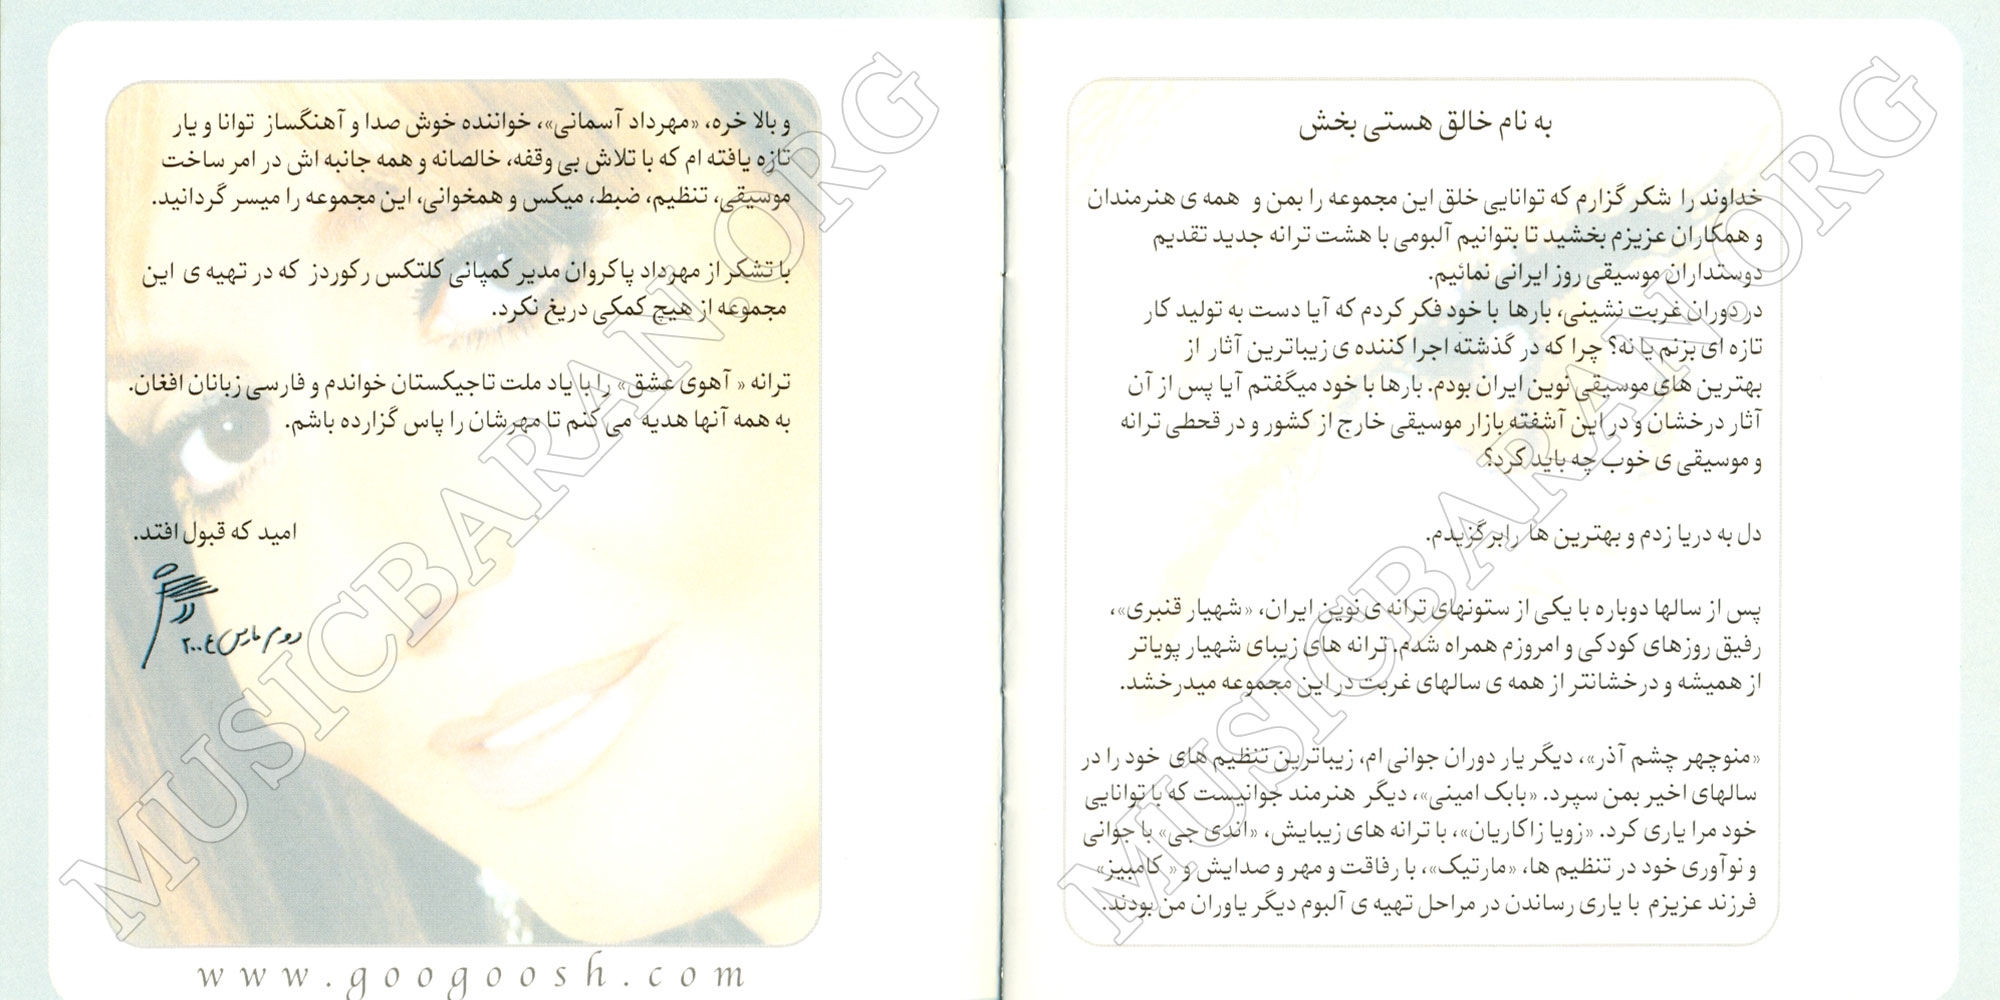 به نام خالق هستی بخش
خداوند را شکر گزارم که توانایی خلق این مجموعه را بمن و همه ی هنرمندان
و همکاران عزیزم بخشید تا بتوانیم آلبومی با هشت ترانه جدید تقدیم
دوستداران موسیقی روز ایرانی نمائیم.
در دوران غربت نشینی، بارها با خود فکر کردم که آیا دست به تولید کار
تازه ای بزنم یا نه؟ چرا که در گذشته اجرا کننده ی زیباترین آثار از
بهترین های موسیقی نوین ایران بودم. بارها با خود میگفتم آیا پس از آن
آثار درخشان و در این آشفته بازار موسیقی خارج از کشور و در قحطی ترانه
و موسیقی ی خوب چه باید کرد؟
دل به دریا زدم و بهترین ها رابرگزیدم.
پس از سالها دوباره با یکی از ستونهای ترانه ی نوین ایران، «شهیار قنبری»،
رفیق روزهای کودکی و امروزم همراه شدم. ترانه های زیبای شهیار پویاتر
از همیشه و درخشانتر از همه ی سالهای غربت در این مجموعه میدرخشد.
«منوچهر چشم آذر»، دیگر یار دوران جوانی ام، زیباترین تنظیم های خود را در
سالهای اخیر بمن سپرد. «بابک امینی»، دیگر هنرمند جوانیست که با توانایی
خود مرا یاری کرد. «زویا زاکاریان»، با ترانه های زیبایش، «اندی جی» با جوانی
و نوآوری خود در تنظیم ها، «مارتیک»، با رفاقت و مهر و صدایش و « کامبیز»
فرزند عزیزم با یاری رساندن در مراحل تهیه ی آلبوم دیگر یاوران من بودند.
و بالا خره، «مهرداد آسمانی»، خواننده خوش صدا و آهنگساز توانا و یار
تازه یافته ام که با تلاش بی وقفه، خالصانه و همه جانبه اش در امر ساخت
موسیقی، تنظیم، ضبط، میکس و همخوانی، این مجموعه را میسر گردانید.
با تشکر از مهرداد پاکروان مدیر کمپانی کلتکس رکوردز که در تهیه ی این
مجموعه از هیچ کمکی دریغ نکرد.
ترانه « آهوی عشق» را با یاد ملت تاجیکستان خواندم و فارسی زبانان افغان.
به همه آنها هدیه می کنم تا مهرشان را پاس گزارده باشم.
امید که قبول افتد.
دوم مارس ۲۰۰٤
www.googoosh.com
MUSICBARAN.ORG
MUSICBARAN.ORG